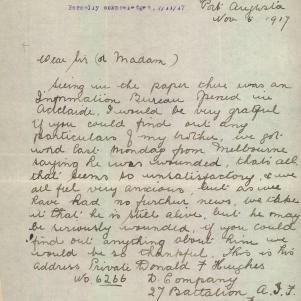 Formally acknowledged, 7/11/17
Port Augusta
Nov 5 1917
Dear Sir (or Madam)
Seeing in the paper there was an
Information Bureau opened in
Adelaide, I would be very grateful
if you could find out any
particulars of my brother, we got
word last Monday from Melbourne
saying he was wounded, that's all
that seems so unsatisfactory, & we
all feel very anxious, but as we
have had no further news, we take
it that he is still alive, but he may
be seriously wounded, if you could
find out anything about him we
would be so thankful. This is his
address Private Donald F Hughes
No 6266 D. Company
27 Battalion A.I.F.